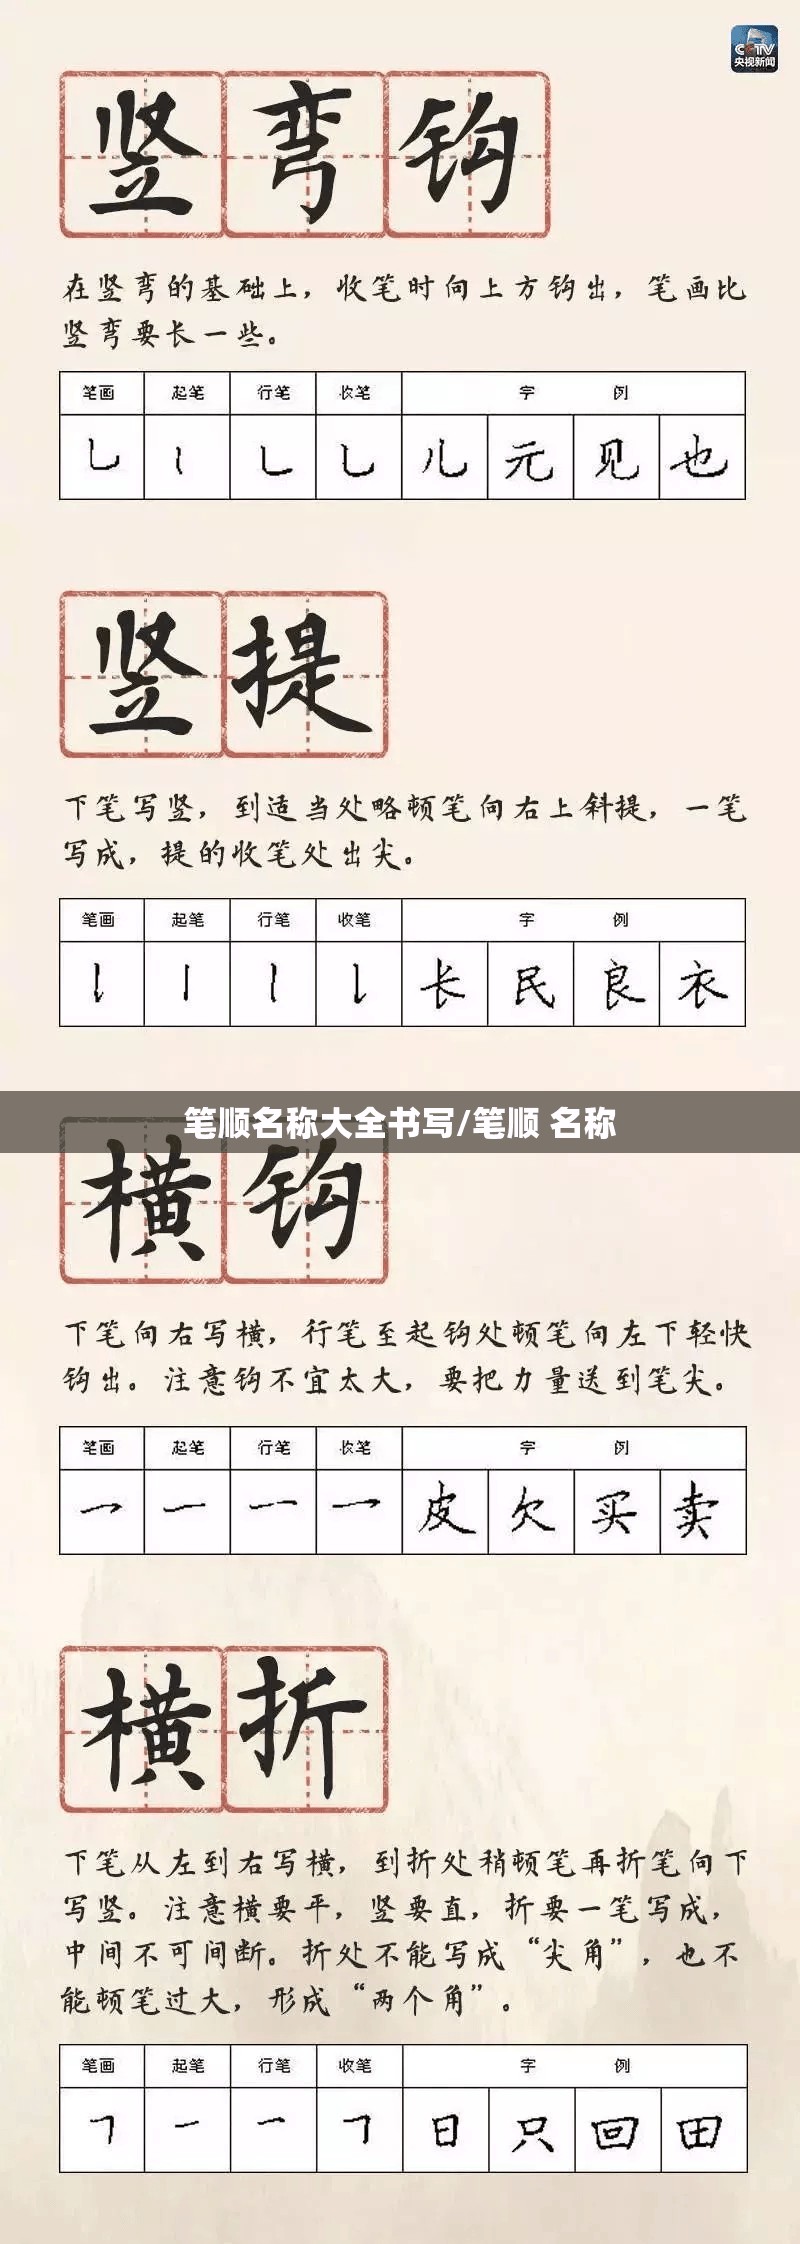 CCTV
央视新闻
竖弯钩
在竖弯的基础上，收笔时向上方钩出，笔画比
竖弯要长一些。
笔画 起笔 行笔 收笔 字 例
乚 丨 ㇄ 乚 儿 元 见 也
竖提
下笔写竖，到适当处略顿笔向右上斜提，一笔
写成，提的收笔处出尖。
笔画 起笔 行笔 收笔 字 例
𠄌 丨 丨 𠄌 长 民 良 衣
笔顺名称大全书写/笔顺 名称
横钩
下笔向右写横，行笔至起钩处顿笔向左下轻快
钩出。注意钩不宜太大，要把力量送到笔尖。
笔画 起笔 行笔 收笔 字 例
乛 一 一 乛 皮 欠 买 卖
横折
下笔从左到右写横，到折处稍顿笔再折笔向下
写竖。注意横要平，竖要直，折要一笔写成，
中间不可间断。折处不能写成“尖角”，也不
能顿笔过大，形成“两个角”。
笔画 起笔 行笔 收笔 字 例
𠃍 一 一 𠃍 日 只 回 田